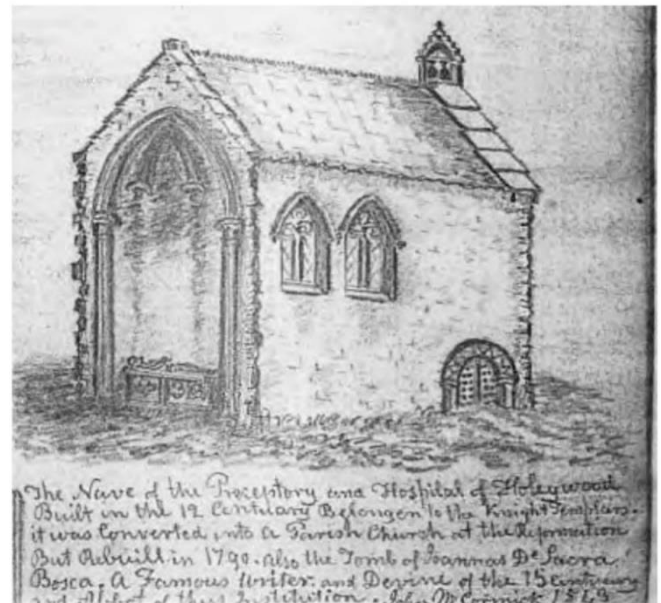 The Nave of the Preceptory and Hospital of Holeywood
Built in the 12 Centuary Belongen to the Knight Templars.
it was Converted into a Parish Church at the Reformation
But Rebuilt in 1790. Also the Tomb of Joannas De Sacra
Bosca. A Famous Writer and Devine of the 13 Centiuary
and Abbot of thus Institution. John McCormick